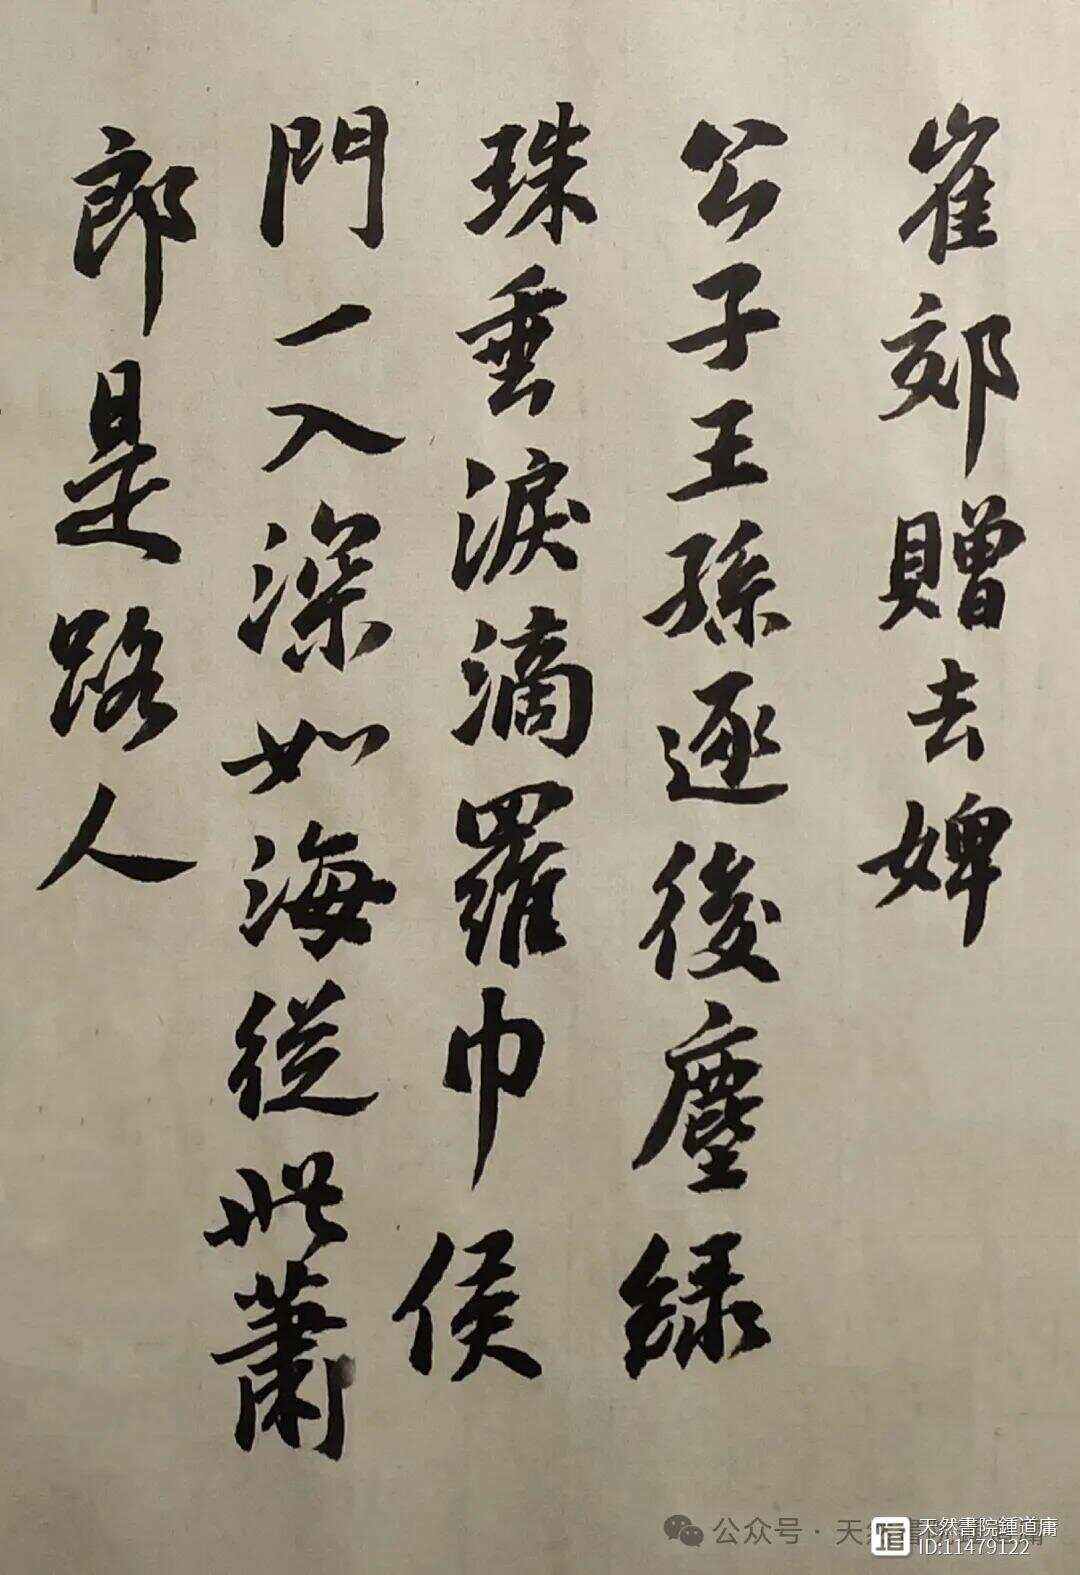 崔郊贈去婢
公子王孫逐後塵綠
珠垂淚滴羅巾侯
門一入深如海從此蕭
郎是路人
公众号·天然書院鍾道庸
天然書院鍾道庸
ID:11479122